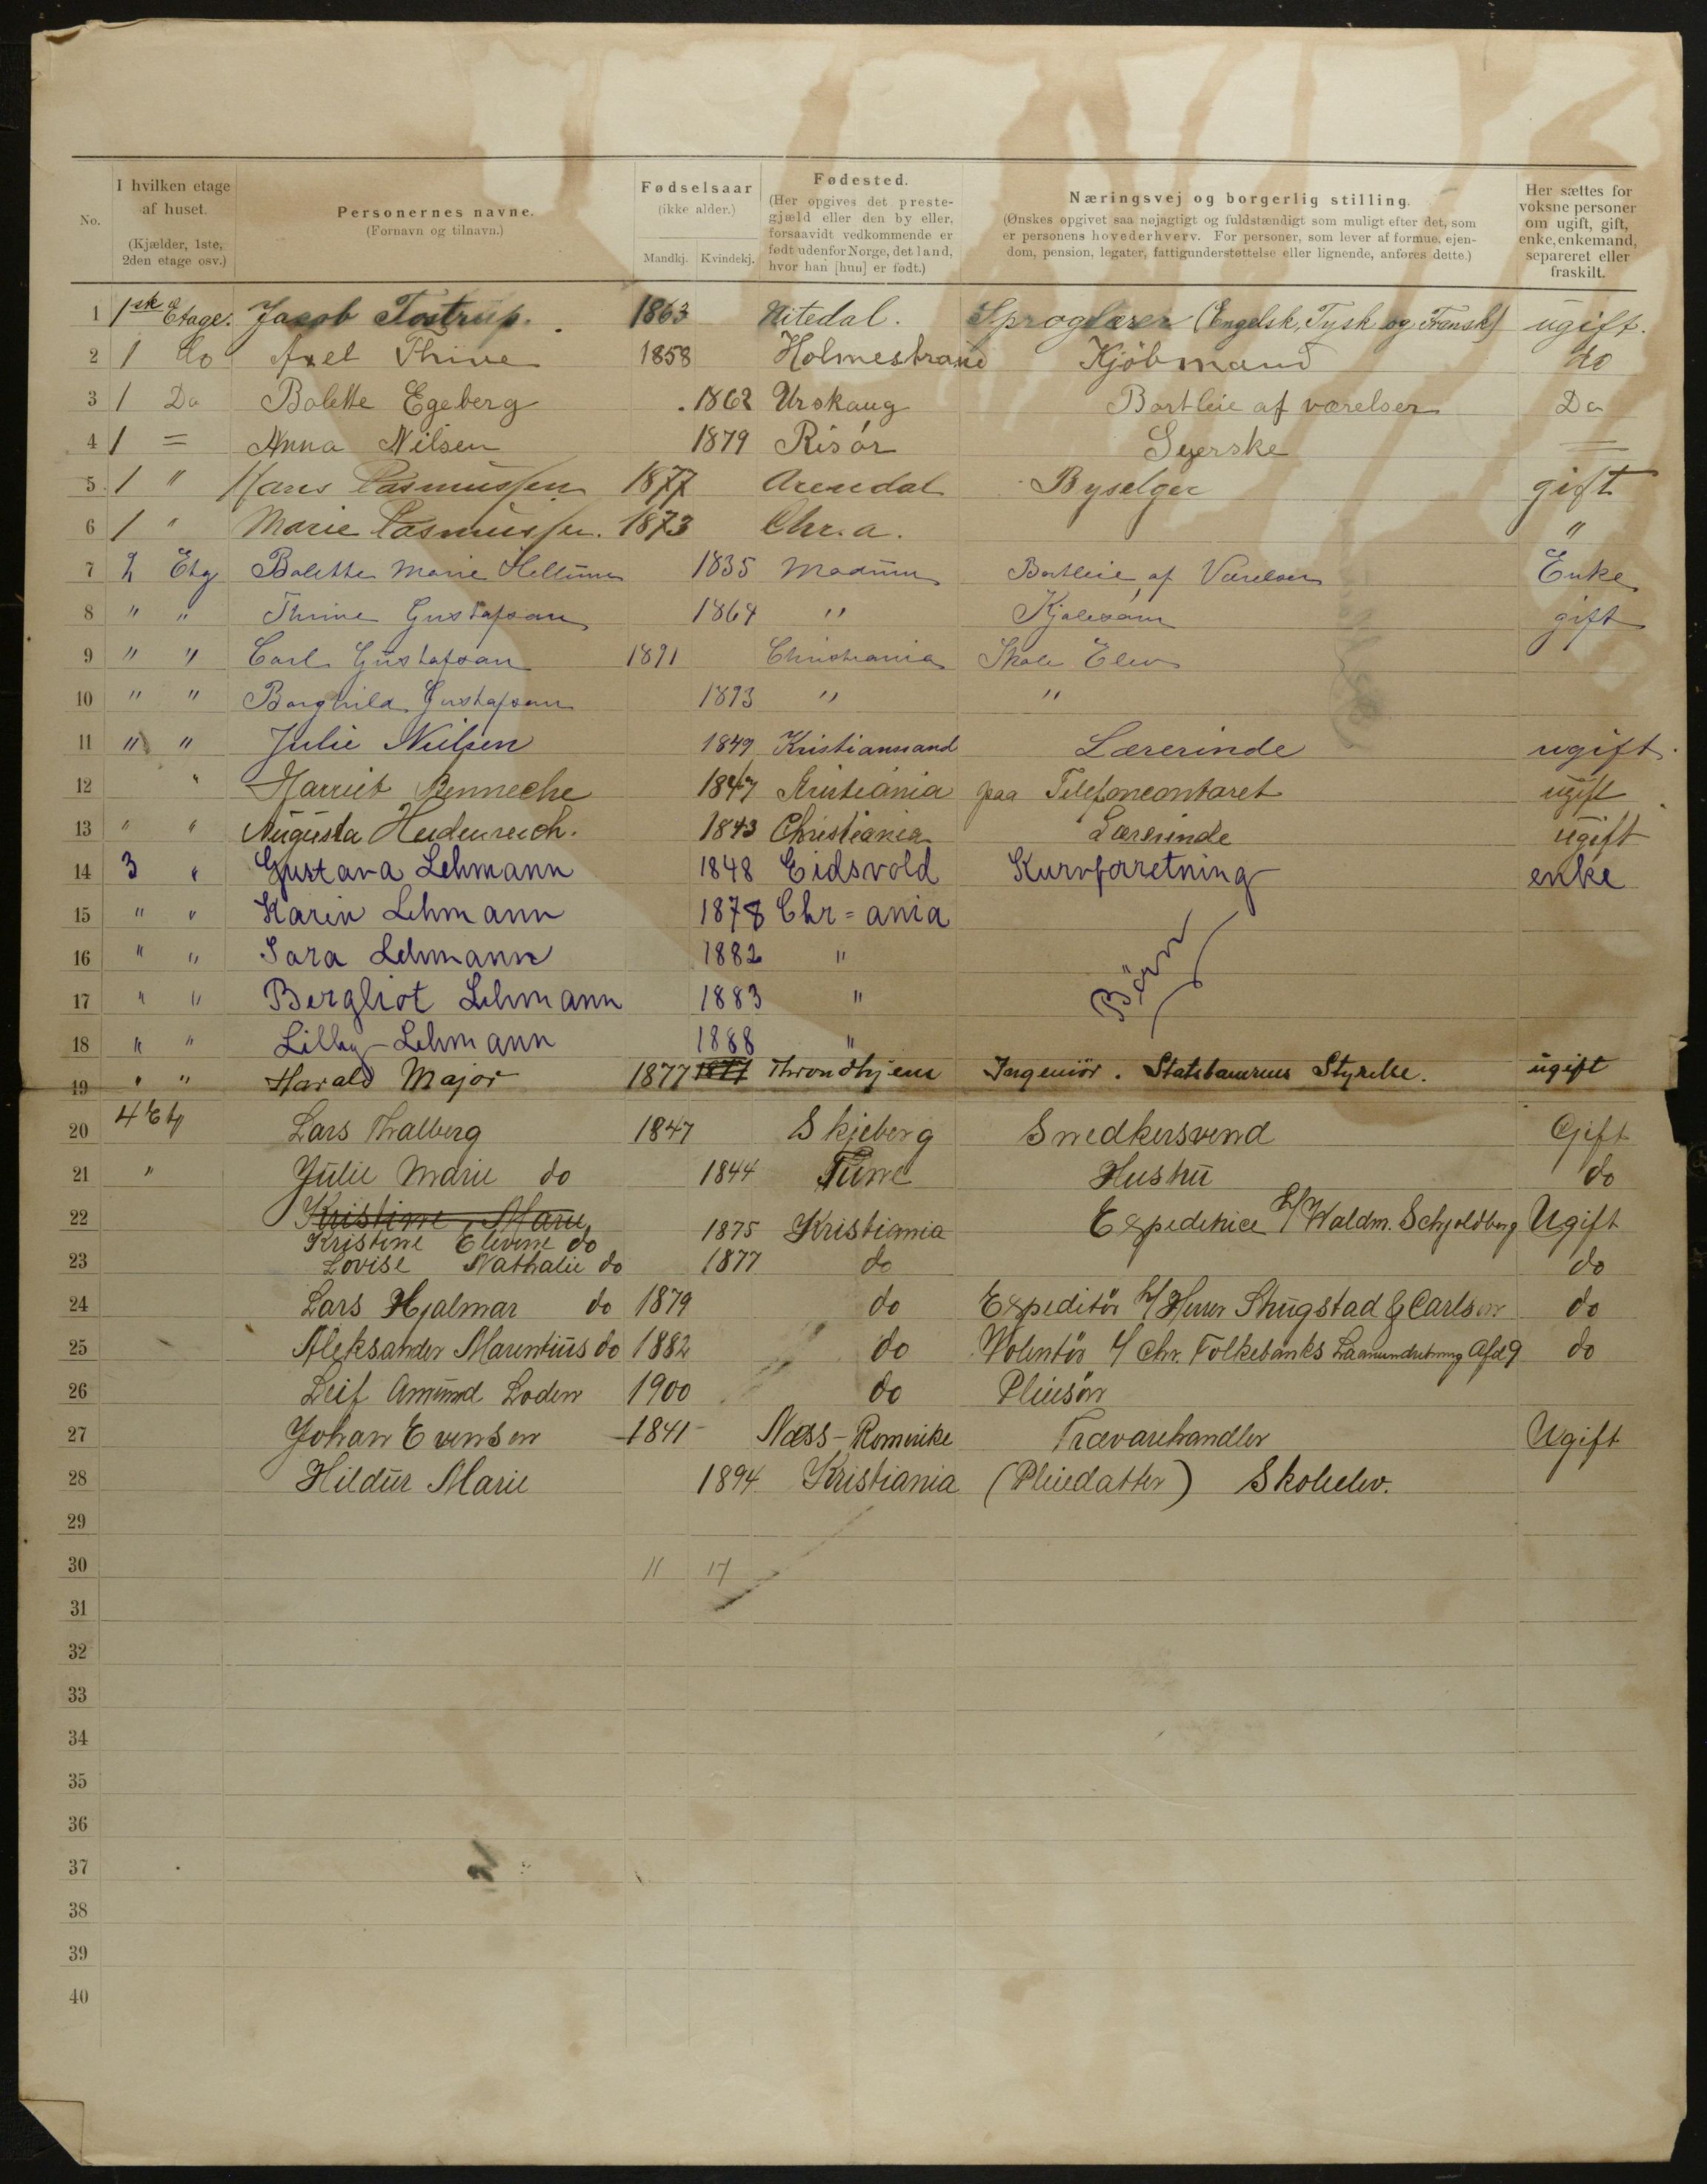 No.
I hvilken etage af huset. (Kjælder, 1ste, 2den etage osv.)
Personernes navne. (Fornavn og tilnavn.)
Fødselsaar (ikke alder.) Mandkj. Kvindekj.
Fødested. (Her opgives det prestegjæld eller den by eller, forsaavidt vedkommende er født udenfor Norge, det land, hvor han [hun] er født.)
Næringsvej og borgerlig stilling. (Ønskes opgivet saa nøjagtigt og fuldstændigt som muligt efter det, som er personens hovederhverv. For personer, som lever af formue, ejendom, pension, legater, fattigunderstøttelse eller lignende, anføres dette.)
Her sættes for voksne personer om ugift, gift, enke, enkemand, separeret eller fraskilt.
1 1ste Etage. Jacob Tostrup. 1863 Nitedal. Sproglærer (Engelsk, Tysk og Fransk) ugift.
2 1 do Axel Thrine 1858 Holmestrand Kjöbmand do
3 1 Do Bolette Egeberg 1862 Urskaug Bortleie af værelser Do
4 1 = Anna Nilsen 1879 Risör Syerske =
5 1 " Hans Rasmussen 1877 Arendal Byselger gift
6 1 " Marie Rasmussen. 1873 Chr.a. "
7 2 Etg Bolette Marie Hellum 1835 Modum Bortleie af Værelser Enke
8 " " Thrine Gustafson 1864 " Kjolesöm gift
9 " " Carl Gustafson 1891 Christiania Skole Elev
10 " " Borghild Gustafson 1893 " "
11 " " Julie Nielsen 1849 Kristianssand Lærerinde ugift.
12 " Harriet Renneche 1847 Kristiania paa Telefoncontoret ugift
13 " " Augusta Heidenreich. 1843 Christiania Lærerinde ugift
14 3 " Gustava Lehmann 1848 Eidsvold Kurvforretning enke
15 " " Karin Lehmann 1878 Chr=ania
16 " " Sara Lehmann 1882 "
Börn
17 " " Bergliot Lehmann 1883 "
18 " " Lilly Lehmann 1888 "
19 " " Harald Major 1877 1877 Throndhjem Ingeniör. Statsbanernes Styrelse. ugift
20 4 Etg Lars Thalberg 1847 Skjeberg Snedkersvend Gift
21 " Julie Marie do 1844 Tune Hustru do
22 Kristine Marie
Kristine Elevine do 1875 Kristiania Expeditrice h/ Waldm. Schjoldborg Ugift
23 Lovise Nathalie do 1877 do do
24 Lars Hjalmar do 1879 do Expeditör h/ Herrer Skugstad & Carlsen do
25 Aleksander Marentius do 1882 do Volentör i/ Chr. Folkebanks Laanindretning Afd 9 do
26 Leif Amund Loden 1900 do Pleiesön
27 Johan Evensen 1841 Næss-Romerike Trævarehandler Ugift
28 Hildur Marie 1894 Kristiania (Pleiedatter) Skoleelev.
29
30 11 17
31
32
33
34
35
36
37
38
39
40